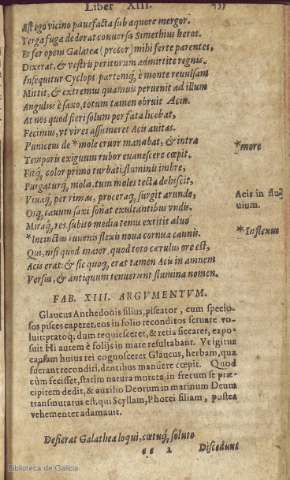 Liber XIII. 437
Ast ego vicino pauefacta sub æquore mergor.
Terga fugæ dederat conuersa Simethius heros.
Et fer opem Galatea (precor) mihi ferte parentes,
Dixerat, & vestris periturum admittite regnis.
Insequitur Cyclops partemq, è monte reuulsam
Mittit, & extremus quamuis peruenit ad illum
Angulus è saxo, totum tamen obruit Acin.
At nos quod fieri solum per fata licebat,
Fecimus, vt vires assumeret Acis auitas.
Puniceus de *mole cruor manabat, & intra *more
Temporis exiguum rubor euanescere cœpit.
Fitq, color primo turbati fluminis imbre,
Purgaturq, mola. tum moles tecta dehiscit,
Viuaq, per rimas, proceraq, surgit arundo, Acis in flu
Osq, cauum saxi sonat exultantibus vndis. uium.
Miraq, res, subito media tenus extitit aluo
*Incinctus iuuenis flexis noua cornua cannis. *Inflexus
Qui, nisi quod maior, quod toto cærulus ore est,
Acis erat: & sic quoq, erat tamen Acis in amnem
Versus, & antiquum tenuerunt flumina nomen.
FAB. XIII. ARGVMENTVM.
Glaucus Anthedonis filius, piscator, cum specio-
sos pisces caperet, eos in folio reconditos seruare vo-
luit: pratoq; dum requiesceret, & retia siccaret, expo-
suit Hi autem è folijs in mare resultabant. Vt igitur
causam huius rei cognosceret Glaucus, herbam, qua
fuerant reconditi, dentibus manuere cœpit. Quod
cùm fecisset, statim natura motata, in fretum se præ-
cipitem dedit, & auxilio Deorum in marinum Deum
transmutatus est, qui Scyllam, Phorci filiam, postea
vehementer adamauit.
Desierat Galathea loqui, cœtuq, soluto
ee 2 Discedunt
Biblioteca de Galicia